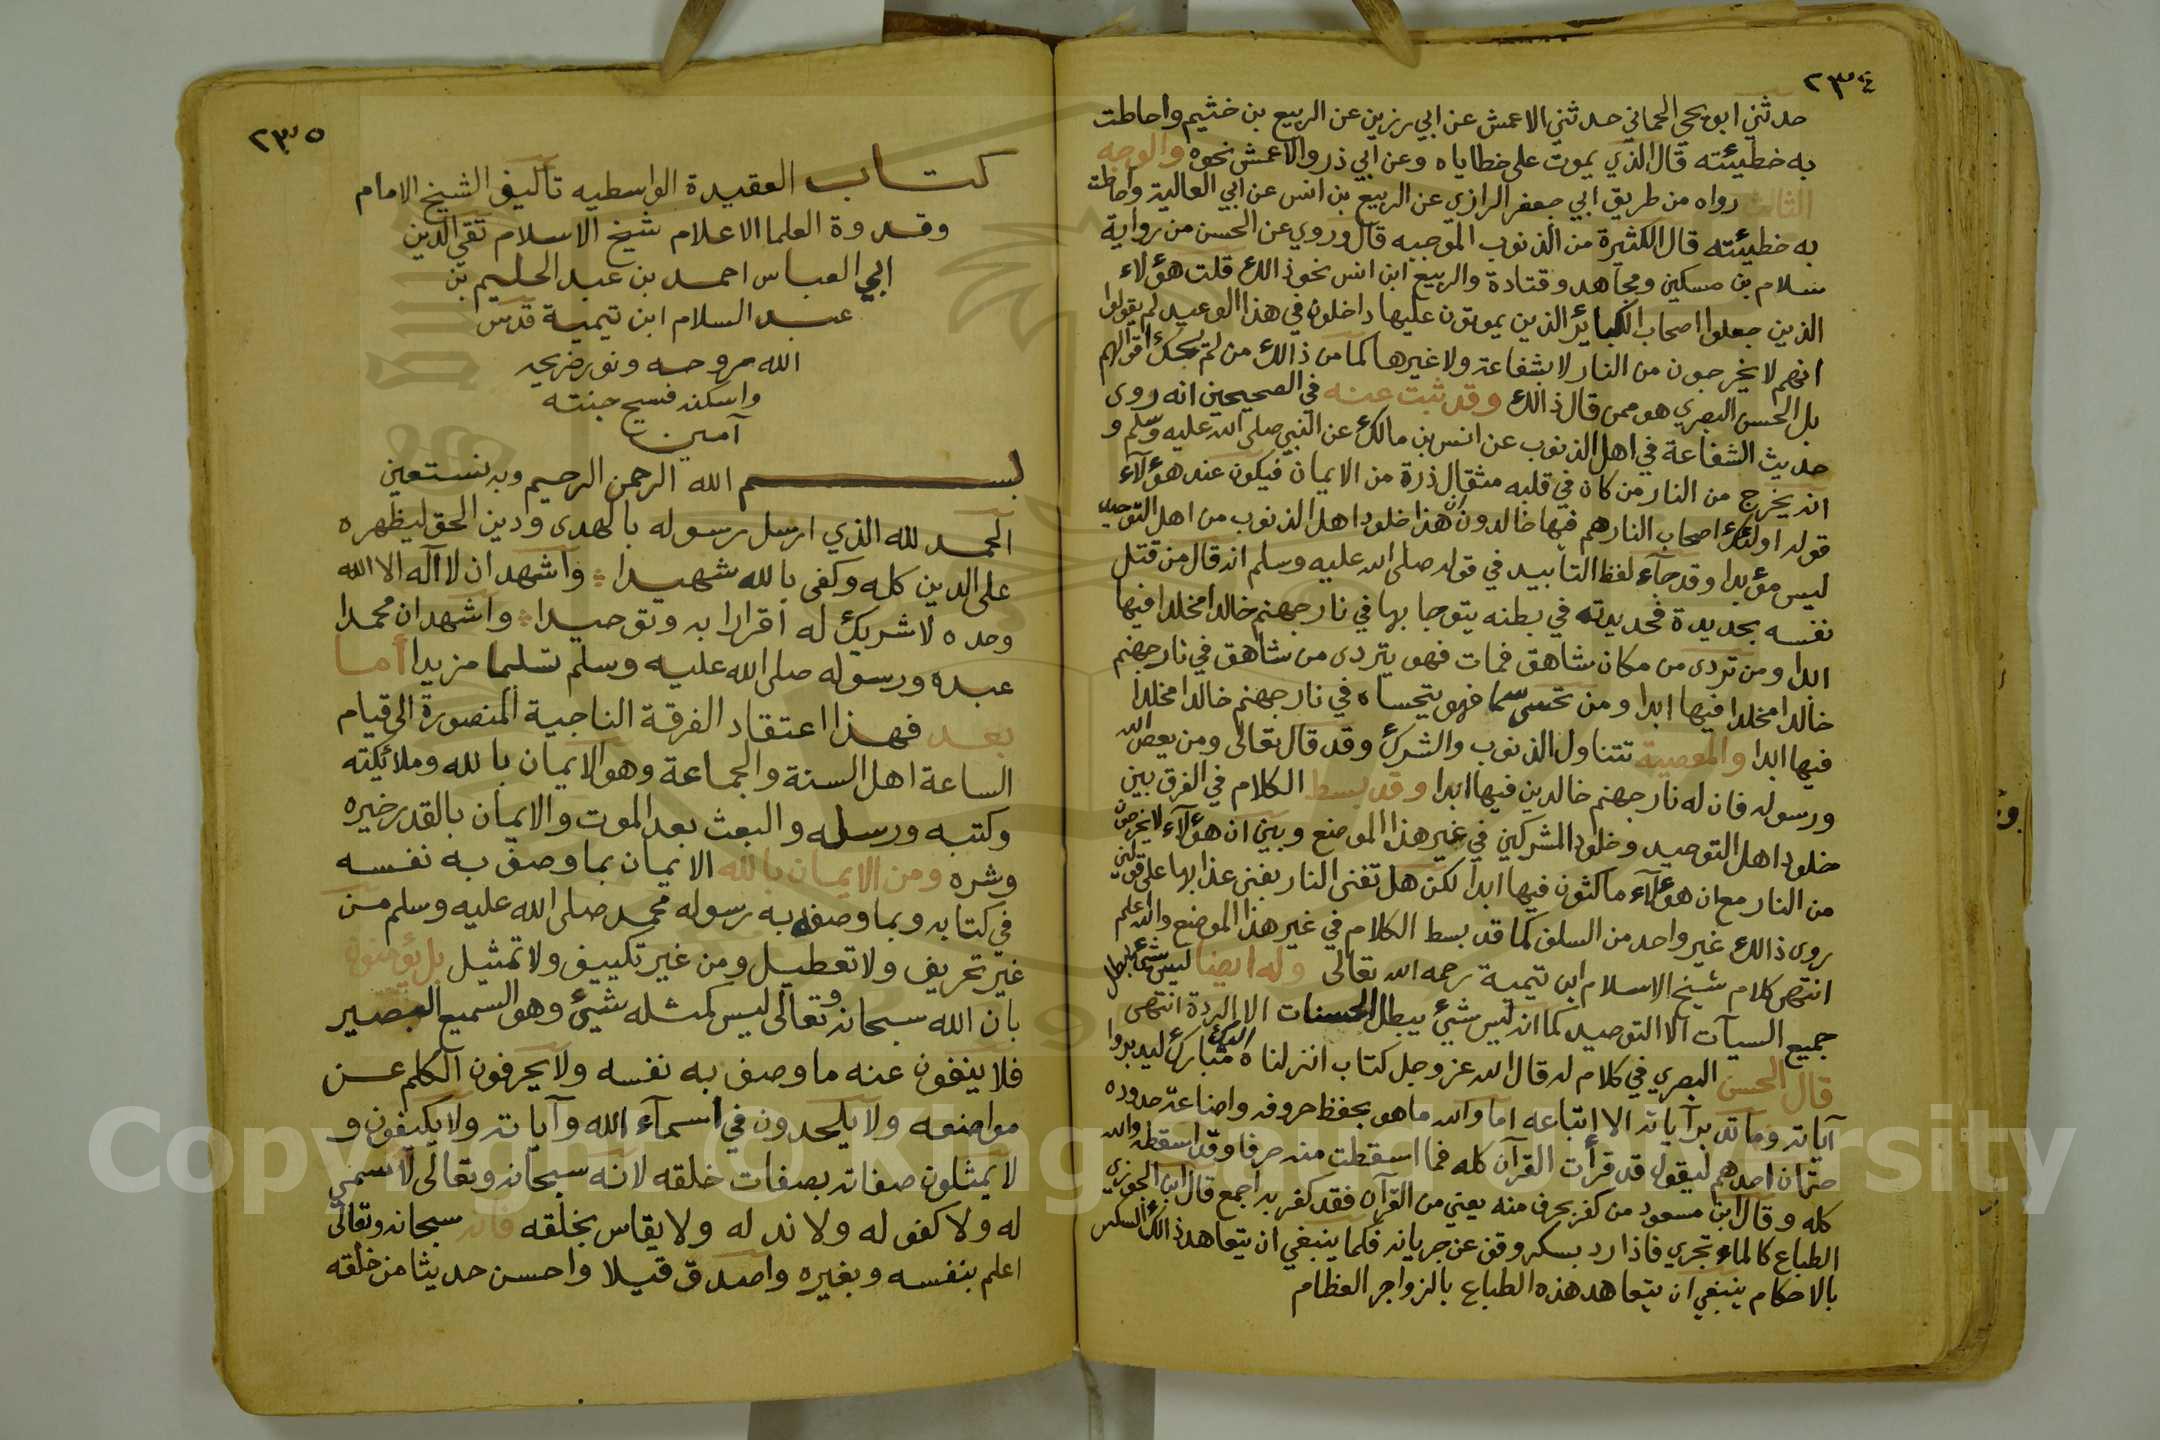 ٢٣٤
حدثني ابو يحي الحماني حدثني الاعمش عن ابي رزين عن الربيع بن خثيم واحاطت
به خطيئته قال الذي يموت على خطاياه وعن ابي ذر والاعمش نحوه والوجه
الثالث رواه من طريق ابي جعفر الرازي عن الربيع بن انس عن ابي العالية واحاطت
به خطيئته قال الكثيرة من الذنوب الموجبه قال وروي عن الحسن من رواية
سلام بن مسكين ومجاهد وقتادة والربيع ابن انس نحو ذالك قلت هؤلاء
الذين جعلوا اصحاب الكبائر الذين يموتون عليها داخلون في هذا الوعيد لم يقولوا
انهم لا يخرجون من النار لا بشفاعة ولا غيرها كما من ذالك من لم يحك اقوالهم
بل الحسن البصري هو ممن قال ذالك وقد ثبت عنه في الصحيحين انه روى
حديث الشفاعة في اهل الذنوب عن انس بن مالك عن النبي صلى الله عليه وسلم و
انه يخرج من النار من كان في قلبه مثقال ذرة من الايمان فيكون عند هؤلآء
قوله اولئك اصحاب النار هم فيها خالدون ان هذا خلود اهل الذنوب من اهل التوحيد
ليس مؤبدا وقد جآء لفظ التأبيد في قوله صلى الله عليه وسلم انه قال من قتل
نفسه بحديدة فحديدته في بطنه يتوجا بها في نار جهنم خالدا مخلدا فيها
ابدا ومن تردى من مكان شاهق فمات فهو يتردى من شاهق في نار جهنم
خالدا مخلدا فيها ابدا ومن تحسى سما فهو يتحساه في نار جهنم خالدا مخلدا
فيها ابدا والمعصية تتناول الذنوب والشرك وقد قال تعالى ومن يعص الله
ورسوله فان له نار جهنم خالدين فيها ابدا وقد بسط الكلام في الفرق بين
خلود اهل التوحيد وخلود المشركين في غير هذا الموضع وبين ان هؤلآء لا يخرجون
من النار مع ان هؤلآء ماكثون فيها ابدا لكن هل تفنى النار يفنى عذابها على قولين
روى ذالك غير واحد من السلف كما قد بسط الكلام في غير هذا الموضع والله اعلم
انتهى كلام شيخ الاسلام ابن تيمية رحمه الله تعالى وله ايضا ليس شئ يبطل
جميع السيآت الا التوحيد كما انه ليس شيئ يبطل الحسنات الا الردة انتهى
قال الحسن البصري في كلام له قال الله عز وجل كتاب انزلناه اليك مبارك ليدبروا
آياته وما تدبر آياته الا اتباعه اما والله ما هو بحفظ حروفه واضاعة حدوده
حتى ان احدهم ليقول قد قرأت القرآن كله فما اسقطت منه حرفا وقد اسقطه والله
كله وقال ابن مسعود من كفر بحرف منه يعني من القرآن فقد كفر به اجمع قال ابن الجوزي
الطباع كالماء تجري فاذا رد بسكر وقف عن جريانه فكما ينبغي ان يتعاهد ذالك السكر
بالاحكام ينبغي ان يتعاهد هذه الطباع بالزواجر العظام
٢٣٥
كتاب العقيدة الواسطيه تأليف الشيخ الامام
وقدوة العلما الاعلام شيخ الاسلام تقي الدين
ابي العباس احمد بن عبد الحليم بن
عبد السلام ابن تيمية قدس
الله روحه ونور ضريحه
واسكنه فسيح جنته
آمين
بسم الله الرحمن الرحيم وبه نستعين
الحمد لله الذي ارسل رسوله بالهدى ودين الحق ليظهره
على الدين كله وكفى بالله شهيدا واشهد ان لا اله الا الله
وحده لا شريك له اقرارا به وتوحيدا واشهد ان محمدا
عبده ورسوله صلى الله عليه وسلم تسليما مزيدا أما
بعد فهذا اعتقاد الفرقة الناجية المنصورة الى قيام
الساعة اهل السنة والجماعة وهو الايمان بالله وملائكته
وكتبه ورسله والبعث بعد الموت والايمان بالقدر خيره
وشره ومن الايمان بالله الايمان بما وصف به نفسه
في كتابه وبما وصفه به رسوله محمد صلى الله عليه وسلم من
غير تحريف ولا تعطيل ومن غير تكييف ولا تمثيل بل يؤمنون
بان الله سبحانه وتعالى ليس كمثله شيئ وهو السميع البصير
فلا ينفون عنه ما وصف به نفسه ولا يحرفون الكلم عن
مواضعه ولا يلحدون في اسمآء الله وآياته ولا يكيفون و
لا يمثلون صفاته بصفات خلقه لانه سبحانه وتعالى لا سمي
له ولا كفو له ولا ند له ولا يقاس بخلقه فانه سبحانه وتعالى
اعلم بنفسه وبغيره واصدق قيلا واحسن حديثا من خلقه
Copyright © King Saud University